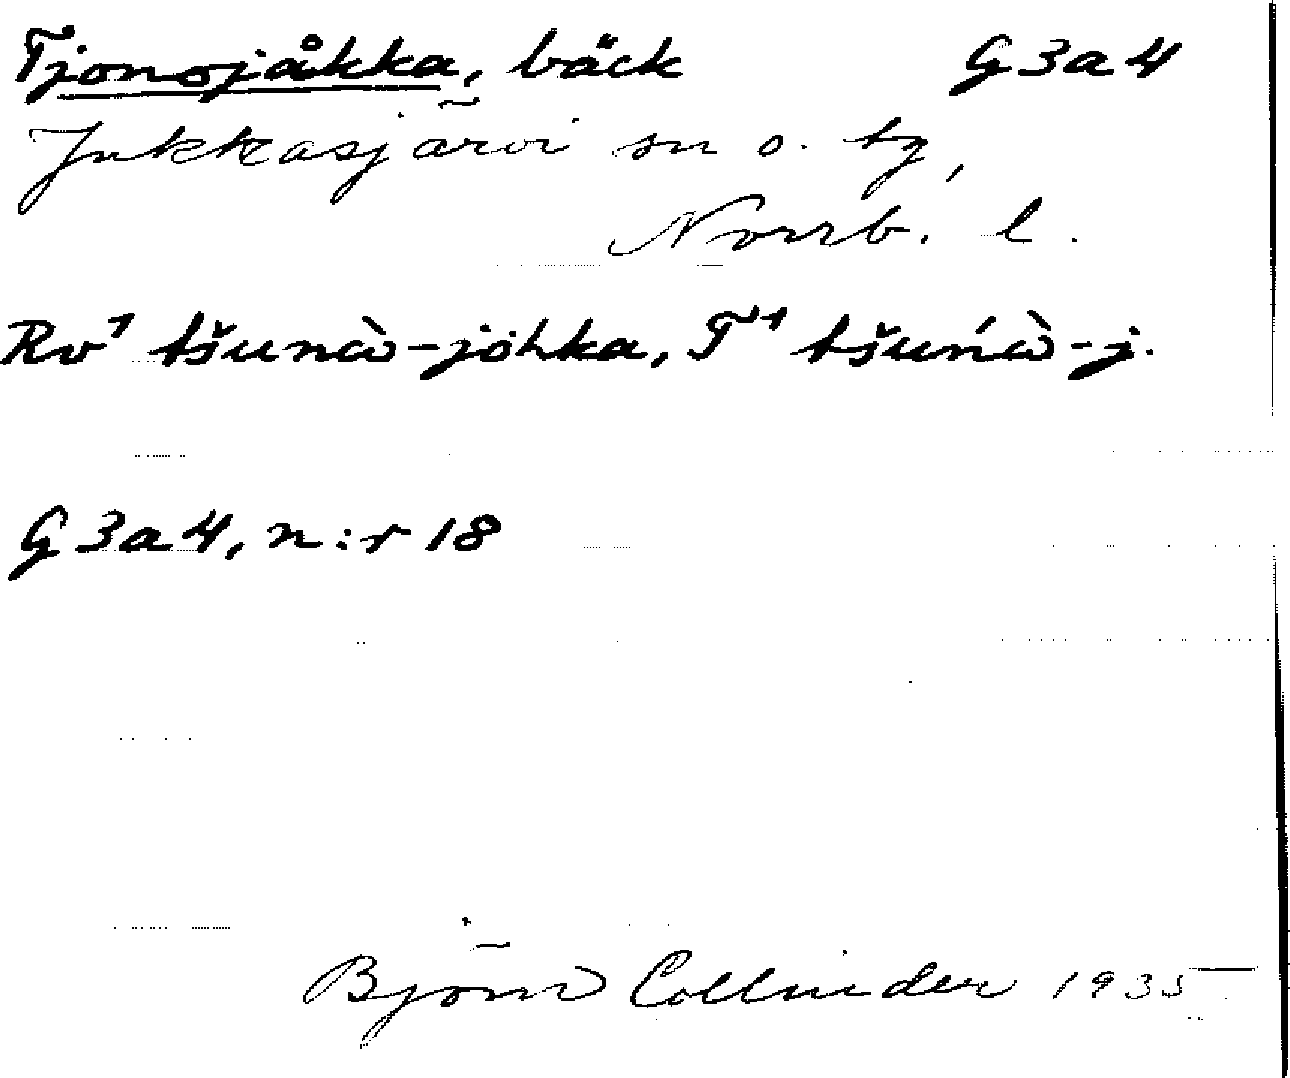 Tjonojåkka, bäck G3a4
Jukkasjärvi sn o. tg,
Norrb. l.
Rv¹ tšunɑ̀ɔ-johka, T¹ tšuńɑ̀ɔ-j.
G3a4, n:r 18
Björn Collinder 1935